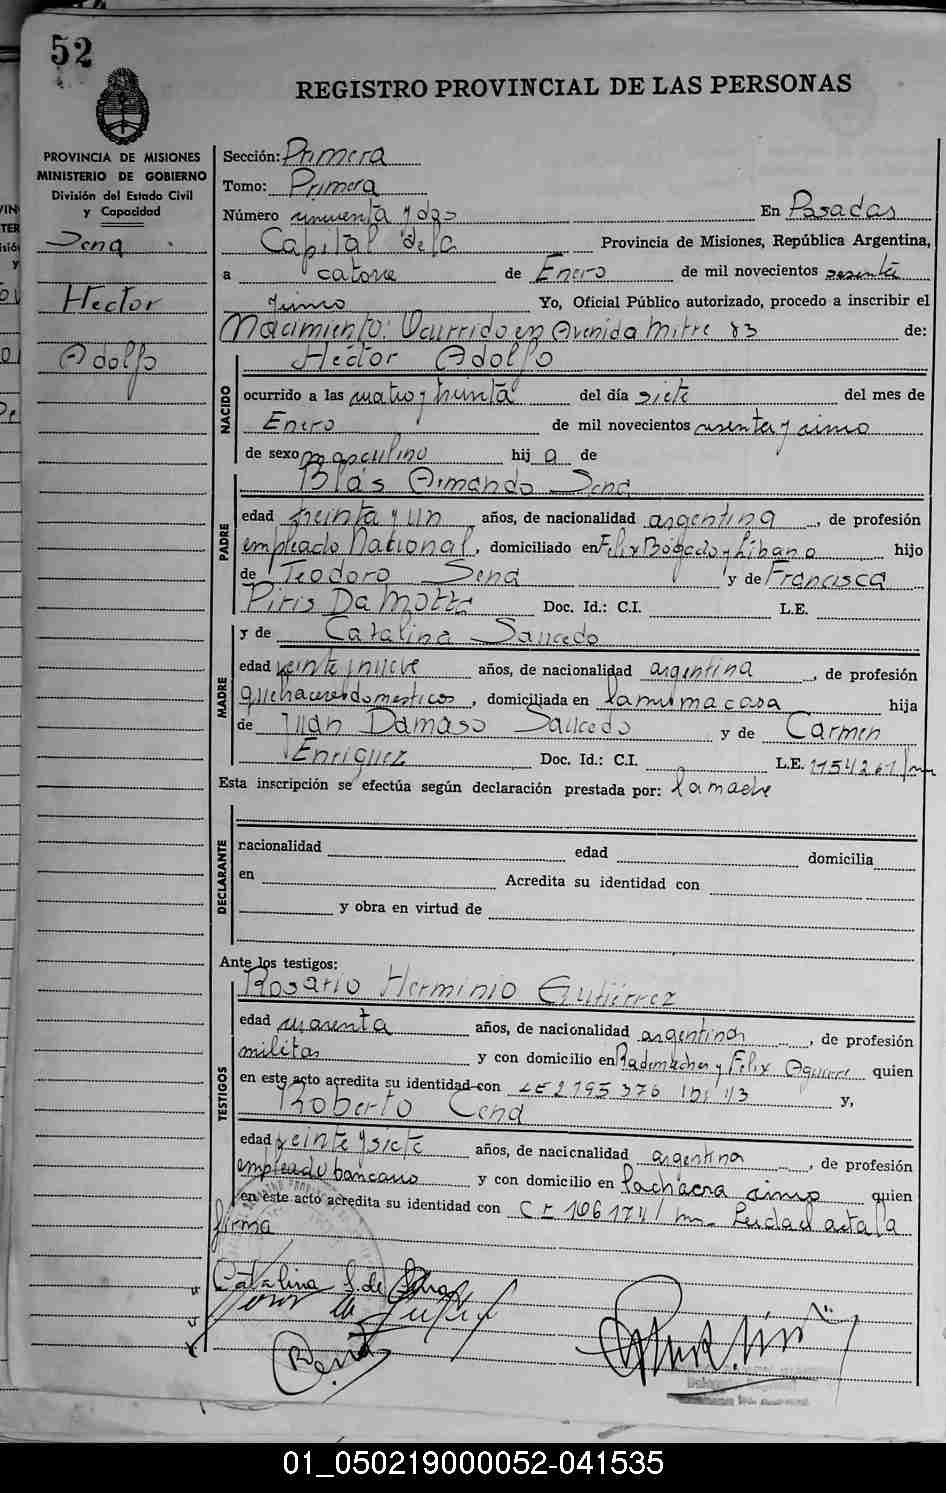 52
REGISTRO PROVINCIAL DE LAS PERSONAS
PROVINCIA DE MISIONES
MINISTERIO DE GOBIERNO
División del Estado Civil
y Capacidad
Sena
Hector
Adolfo
Sección: Primera
Tomo: Primera
Número cincuenta y dos En Posadas
Capital de la Provincia de Misiones, República Argentina,
a catorce de Enero de mil novecientos sesenta
y uno Yo, Oficial Público autorizado, procedo a inscribir el
Nacimiento: Ocurrido en Avenida Mitre 83 de:
Hector Adolfo
NACIDO
ocurrido a las cuatro y treinta del día siete del mes de
Enero de mil novecientos sesenta y uno
de sexo masculino hij o de
Blás Armando Sena
PADRE
edad treinta y un años, de nacionalidad argentina, de profesión
empleado Nacional, domiciliado en Felix Bogado y Libano hijo
de Teodoro Sena y de Francisca
Piris Da Motta Doc. Id.: C.I. L.E.
y de Catalina Saucedo
MADRE
edad veinte y nueve años, de nacionalidad argentina, de profesión
quehaceres domesticos, domiciliada en la misma casa hija
de Juan Damaso Saucedo y de Carmen
Enriquez Doc. Id.: C.I. L.E. 1154261
Esta inscripción se efectúa según declaración prestada por: la madre
DECLARANTE
nacionalidad edad domicilia
en Acredita su identidad con
y obra en virtud de
Ante los testigos:
Rosario Herminio Gutiérrez
TESTIGOS
edad cuarenta años, de nacionalidad argentina, de profesión
militar y con domicilio en Rademacher y Felix Aguirre quien
en este acto acredita su identidad con LE 2795376 y,
Roberto Cena
edad veinte y siete años, de nacionalidad argentina, de profesión
empleado bancario y con domicilio en la chacra quien
en este acto acredita su identidad con C I 106174 Leida el acta la
firma
Catalina S. de Sena
01_050219000052-041535